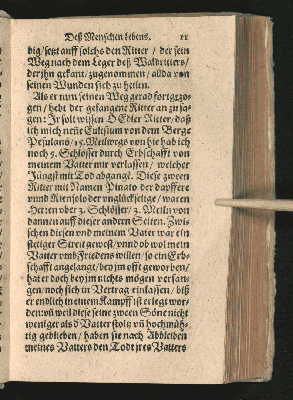 Deß Menschen Lebens. 11
dig/ setzt auff solchs den Ritter / der sein
Weg nach dem Leger deß Waldritters/
der ihn gekant/ zugenommen / allda von
seinen Wunden sich zu heilen.
Als er nun seinen Weg gerad fortgezo-
gen / hebt der gefangene Ritter an zu sa-
gen: Jr solt wissen O Edler Ritter/ daß
ich mich neñe Eutisium von dem Berge
Pesulano/ 15. Meilwegs von hie hab ich
noch 5. Schlösser durch Erbschafft von
meinem Vatter mir verlassen / welcher
Jüngst mit Tod abgangẽ. Diese zween
Ritter mit Namen Pinato der dapffere
vnnd Riensolo der vnglückselige / waren
Herzen vber 3. Schlösser/ 3. Meiln von
dannen auff dieser andern Seiten. Zwi-
schen diesen vnd meinem Vater war ein
stetiger Streit gewest/ vnnd ob wol mein
Vatter vmb Friedens willen/ so ein Erb-
schafft angelangt/ bey jm offt geworben/
hat er doch bey jm nichts mögen verfan-
gen/ noch sich in Vertrag einlassen / biß
er endlich in einem Kampff ist erlegt wor-
den: vñ weil diese seine zween Söne nicht
weniger als ð Vatter stoltz vñ hochmüh-
tig geblieben / haben sie nach Ableiben
meines Vatters den Todt jres Vatters